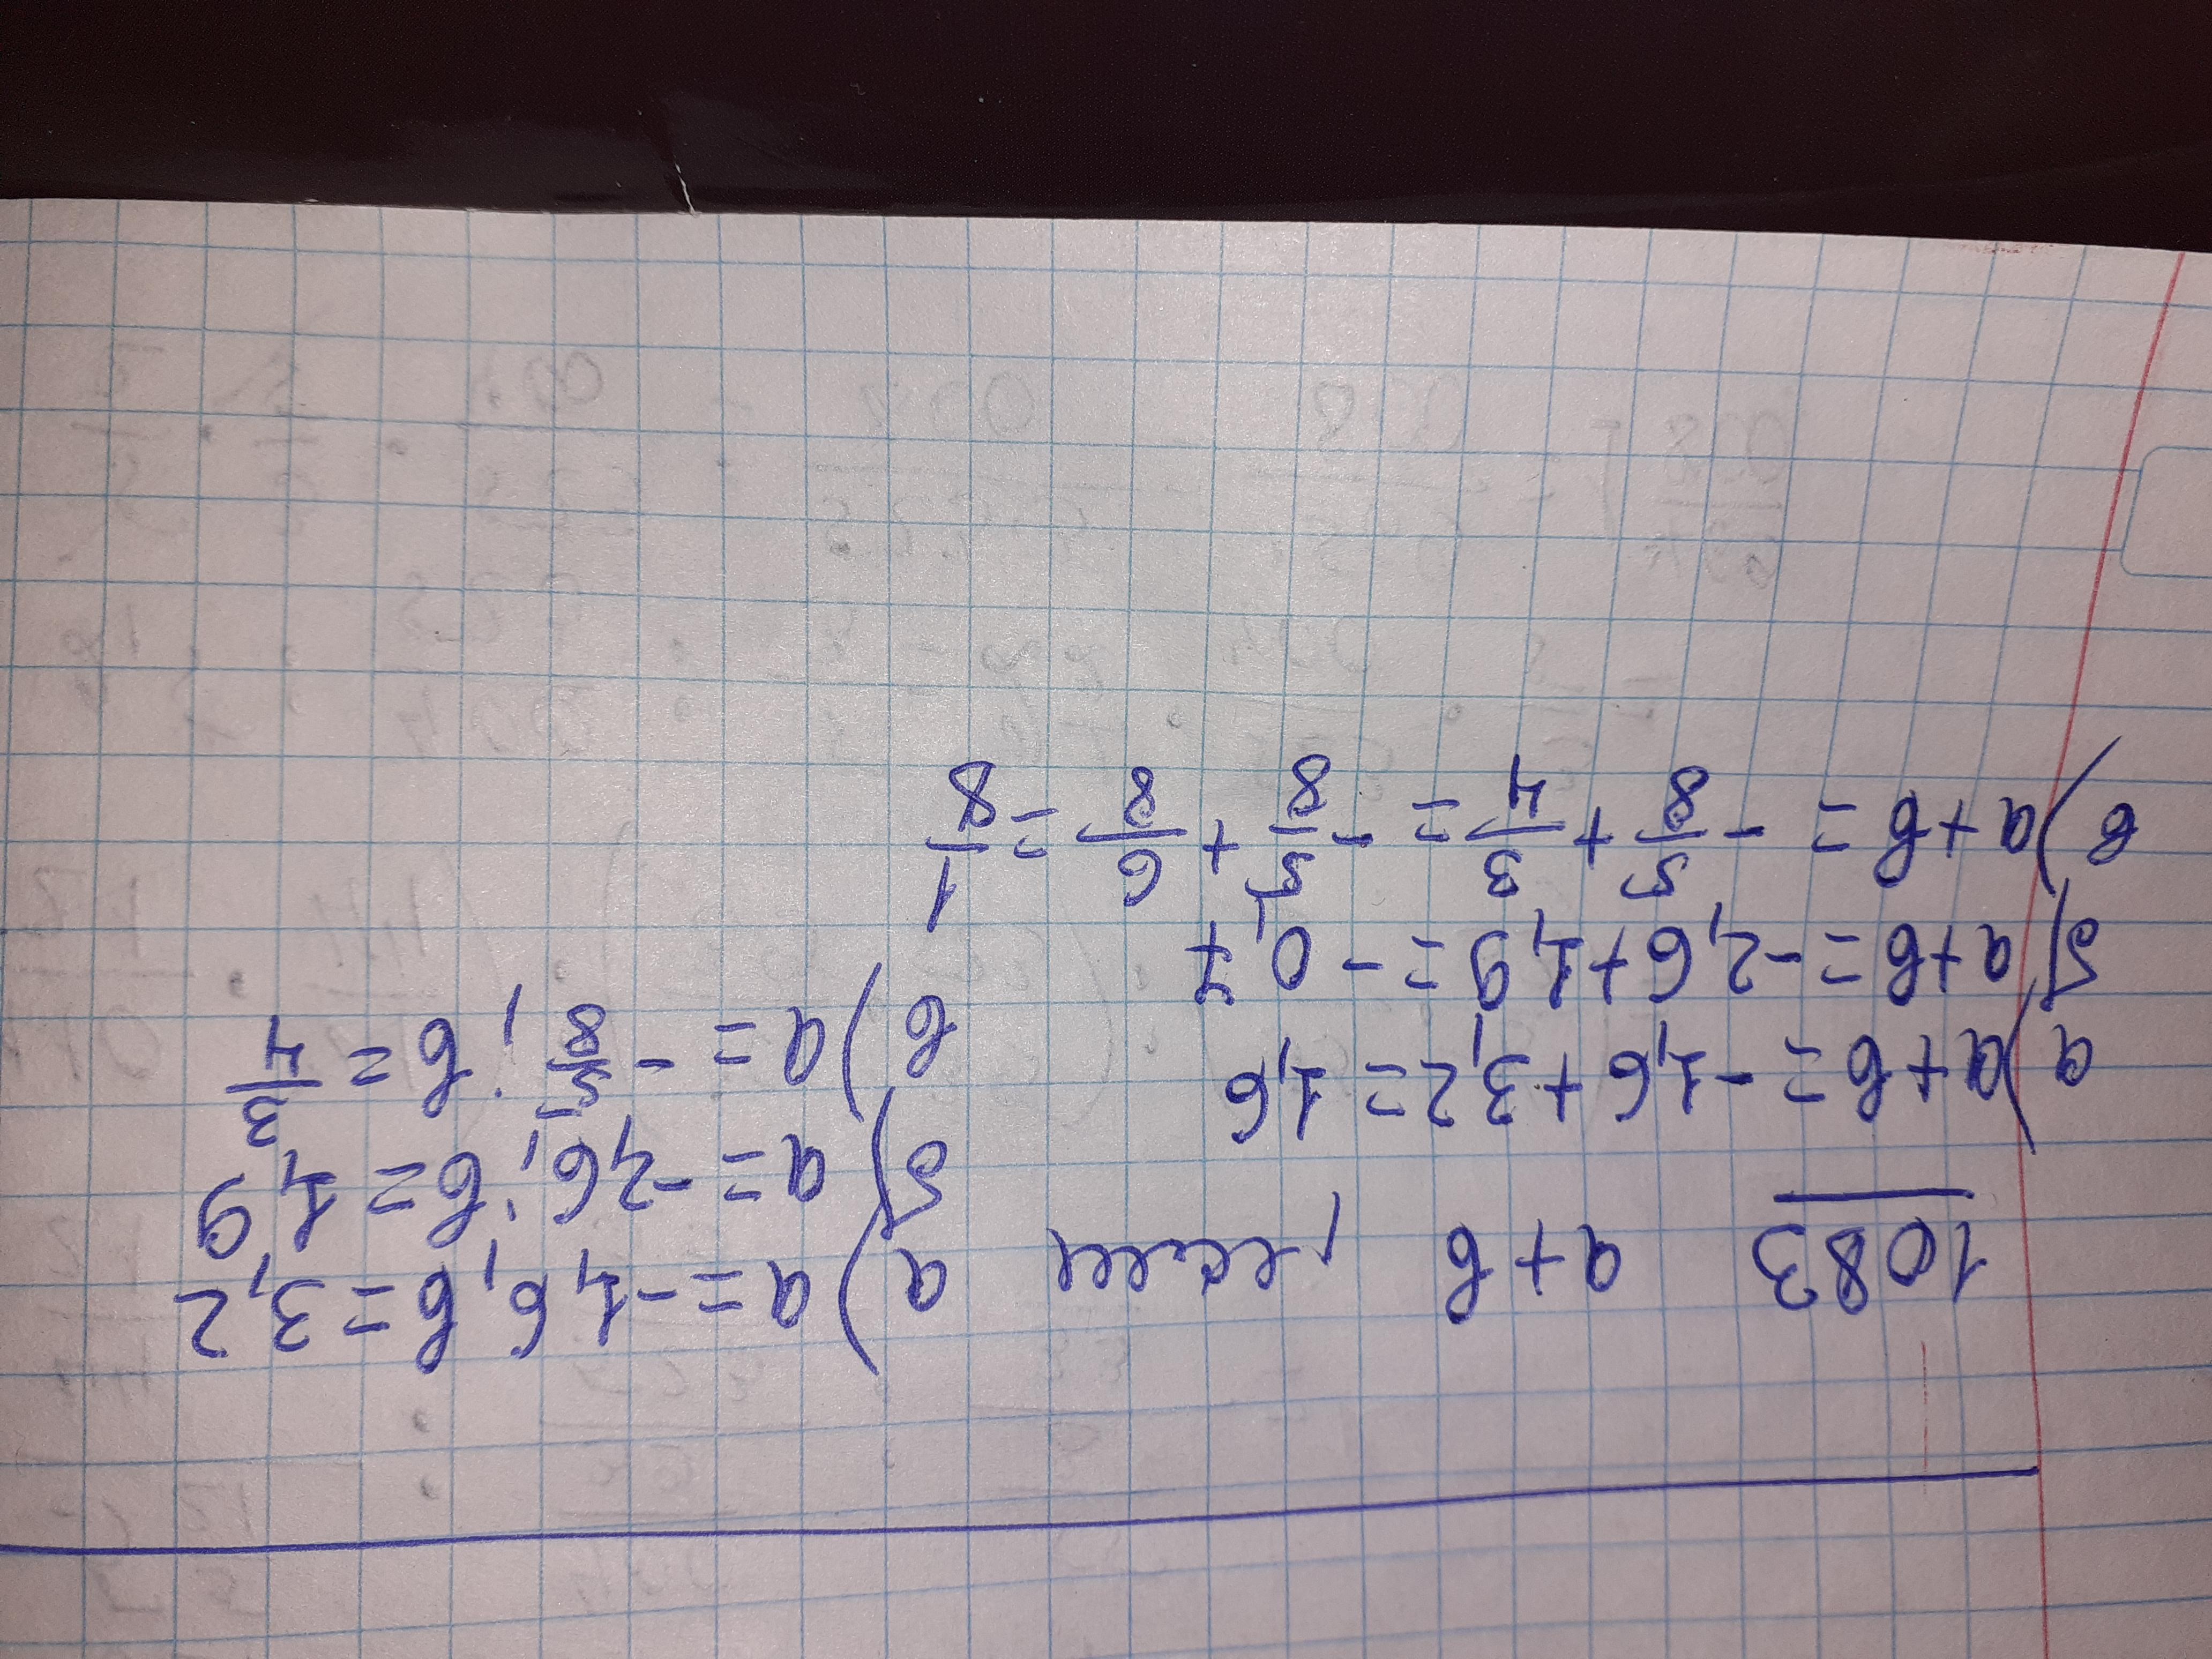 1083 a+в, если а) a=-1,6, в=3,2
б) a=-2,6; в=1,9
в) a=-5/8; в=3/4
а) a+в=-1,6+3,2=1,6
б) a+в=-2,6+1,9=-0,7
в) a+в=-5/8+3/4=-5/8+6/8=1/8